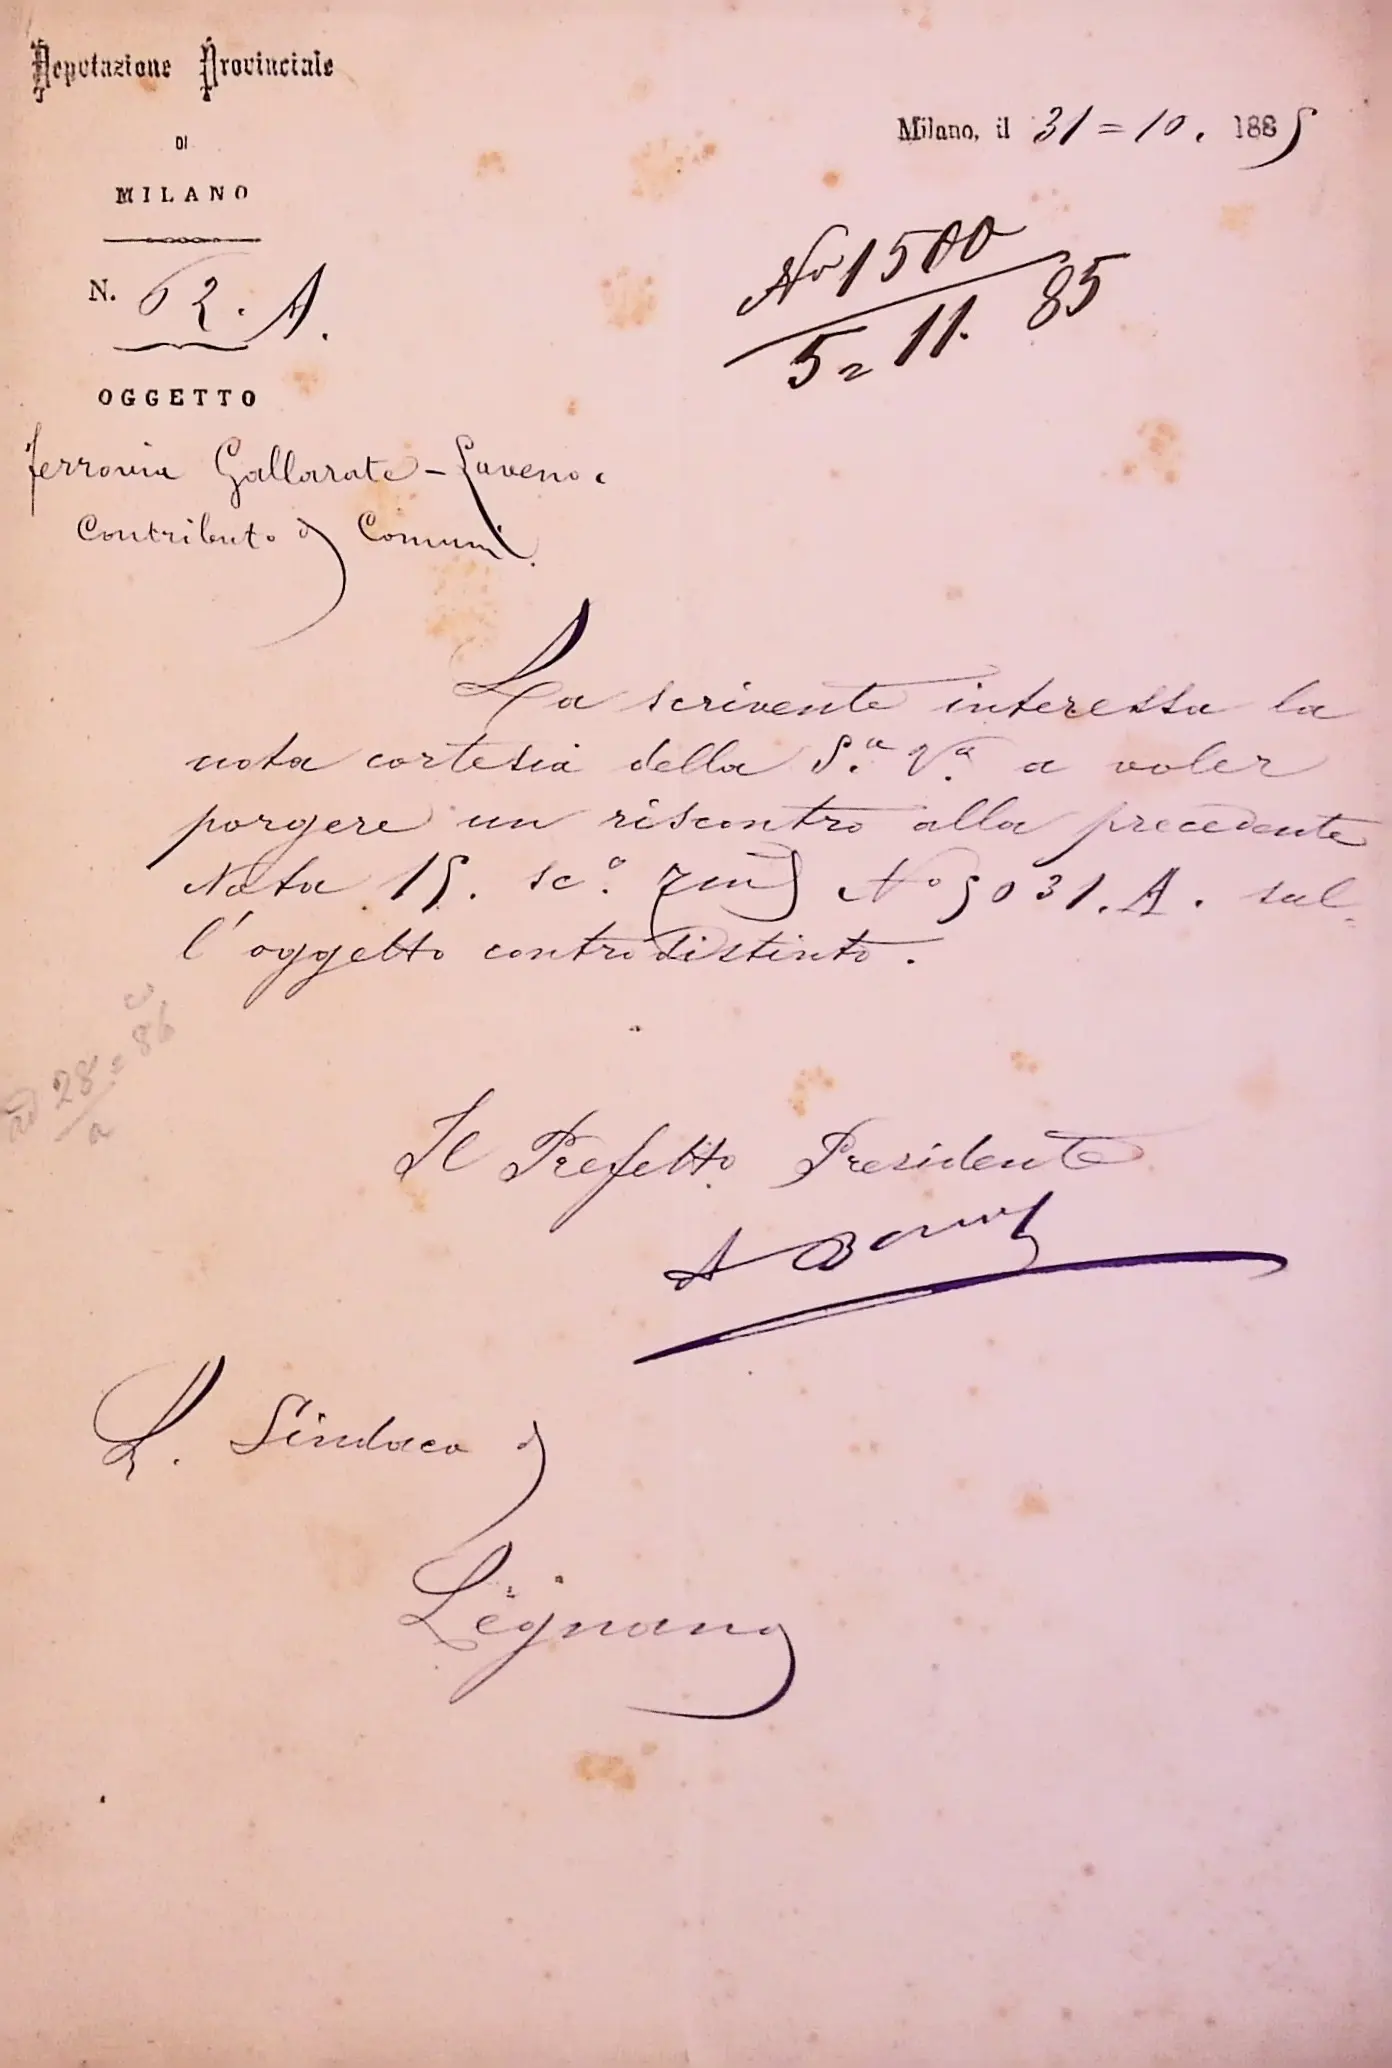 Deputazione Provinciale
DI
MILANO
N. 62. A.
OGGETTO
Ferrovia Gallarate-Laveno.
Contributo di Comuni.
Milano, il 31=10. 1885
No 1500
5= 11. 85
La scrivente interessa la
nota cortesia della S.a V.a a voler
porgere un riscontro alla precedente
Nota 15. sc.o No 5031. A. sul-
l'oggetto controdistinto.
28 = 86
a
Il Prefetto Presidente
A
L. Sindaco di
Legnano